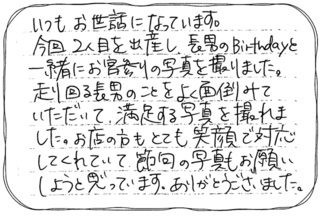 いつもお世話になっています。
今回2人目を出産し、長男のBirthdayと
一緒にお宮参りの写真を撮りました。
走り回る長男のことをよく面倒みて
いただいて、満足する写真を撮れま
した。お店の方もとても笑顔で対応
してくれていて、節句の写真もお願い
しようと思っています。ありがとうございました。